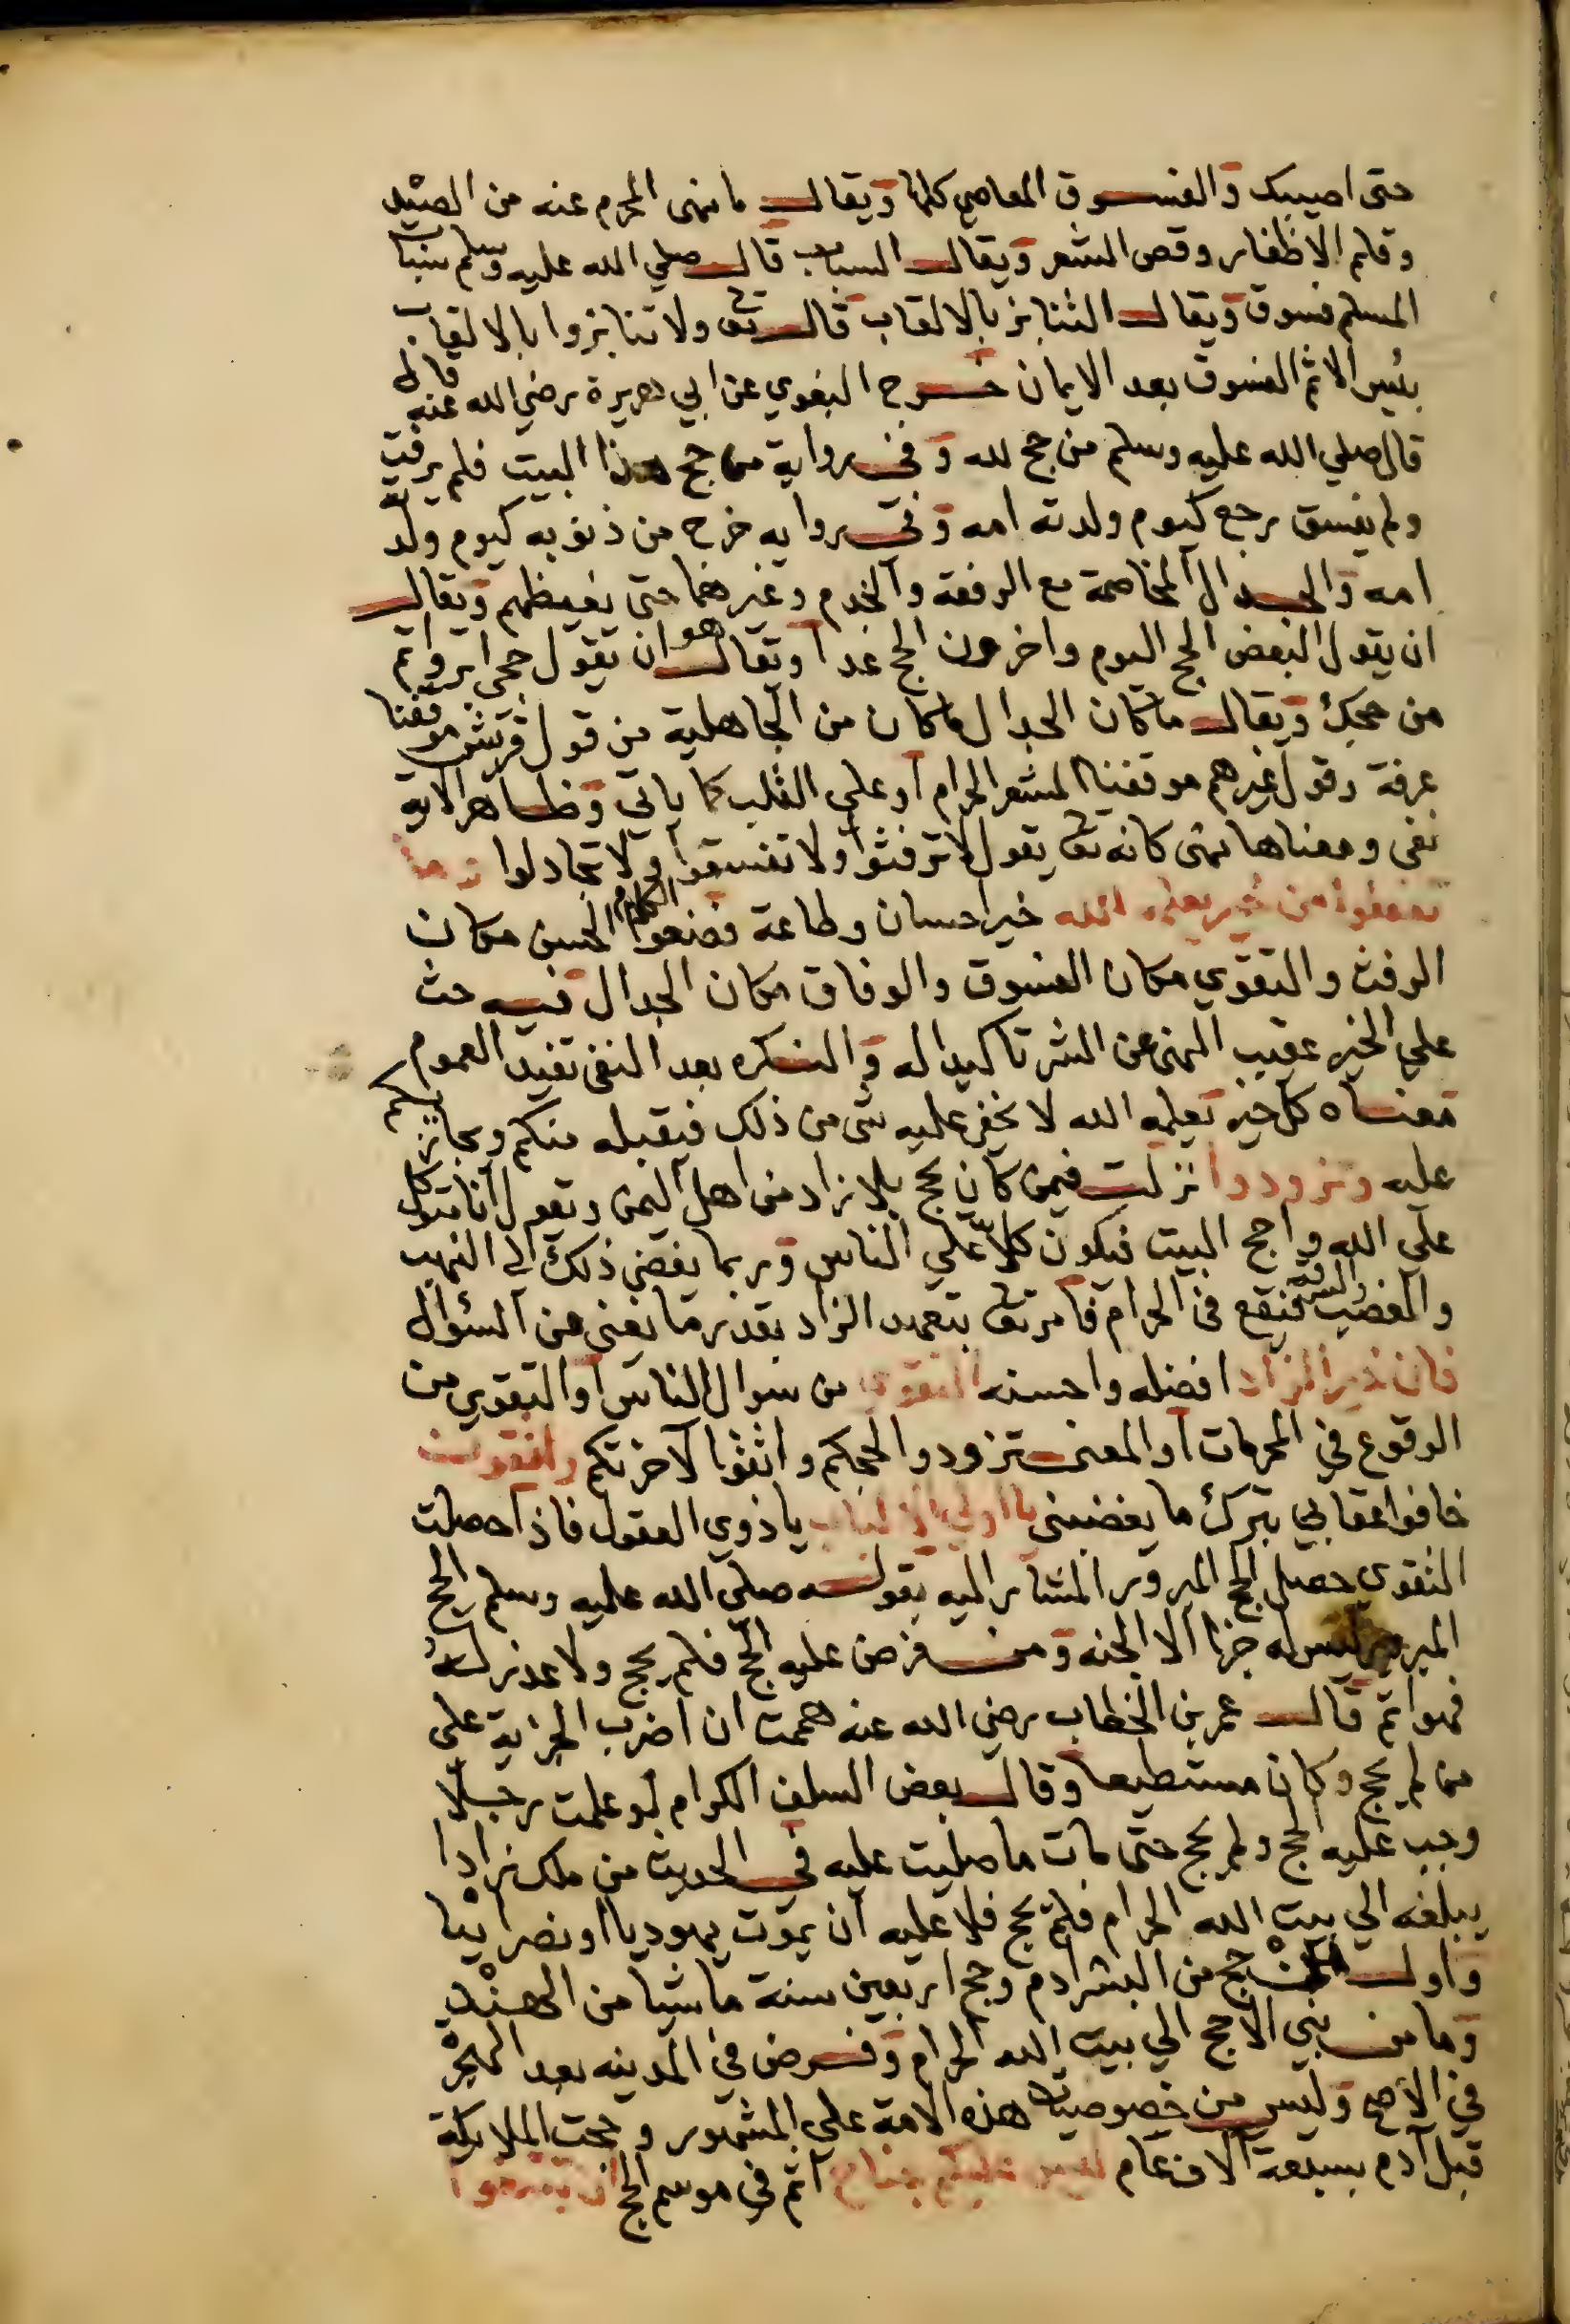 حتى اصيبك والفسوق المعاصي كلها ويقال ما نهى المحرم عنه من الصيد
وقلم الاظفار وقص الشعر ويقال السباب قال صلي الله عليه وسلم سباب
المسلم فسوق ويقال التنابز بالالقاب قال تعا ولا تنابزوا بالالقاب
بئس الاثم الفسوق بعد الايمان خرج البغوي عن ابي هريرة رضي الله عنه قال
قال صلي الله عليه وسلم من حج لله وفي رواية من حج هذا البيت فلم يرفث
ولم يفسق رجع كيوم ولدته امه وفي روايه خرج من ذنوبه كيوم ولدته
امه والجدال المخاصمة مع الرفقة والخدم وغيرهما حتى يغيظهم ويقال
ان يقول البعض الحج اليوم واخرون الحج غدا ويقال هو ان يقول حجي ابر واتم
من حجك ويقال ما كان الجدال ما كان من الجاهلية من قول قريش موقفنا
عرفة وقول غيرهم موقفنا المشعر الحرام او علي القلب كما ياتي وظاهر الاية
نفى ومعناها نهى كانه تعا يقول لا ترفثوا ولا تفسقوا ولا تجادلوا وما
تفعلوا من خير يعلمه الله خير احسان وطاعة فضعوا الكلام الحسن مكان
الرفث والتقوي مكان الفسوق والوفاق مكان الجدال فيه حث
علي الخير عقيب النهى عن الشر تاكيدا له والنكره بعد النفى تفيد العموم
معناه كل خير يعلمه الله لا يخفى عليه شى من ذلك فيقبله منكم ويجازيكم
عليه وتزودوا نزلت فيمن كان يحج بلا زاد من اهل اليمن ويقول انا متوكل
على الله واحج البيت فيكون كلّا علي الناس وربما يفضي ذلك الى النهب
والغصب والسرقة فيقع فى الحرام فامر تعا بتعهد الزاد بقدر ما يغنى عن السؤال
فان خير الزاد افضله واحسنه التقوى من سوال الناس او التقوي من
الوقوع في المحرمات او المعنى تزودوا لحجكم واتقوا لآخرتكم واتقون
خافوا عقابي بترك ما يغضبنى يا اولي الالباب يا ذوي العقول فاذا حصلت
التقوى حصل الحج المبرور المشار اليه بقوله صلي الله عليه وسلم الحج
المبرور ليس له جزا الا الجنه ومن فرض عليه الحج فلم يحج ولا عذر له
فهو اثم قال عمر بن الخطاب رضي الله عنه هممت ان اضرب الجزية على
من لم يحج وكان مستطيعا وقال بعض السلف الكرام لو علمت رجلا
وجب عليه الحج ولم يحج حتى مات ما صليت عليه في الحديث من ملك زادا
يبلغه الي بيت الله الحرام فلم يحج فلا عليه ان يموت يهوديا او نصرانيا
واول من حج من البشر ادم وحج اربعين سنة ماشيا من الهند
وما من نبي الا حج الي بيت الله الحرام وفرض في المدينه بعد الهجرة
في الاصح وليس من خصوصيات هذه الامة علي المشهور وحجت الملايكة
قبل آدم بسبعة آلاف عام ليس عليكم جناح اثم في موسم الحج ان تبتغوا